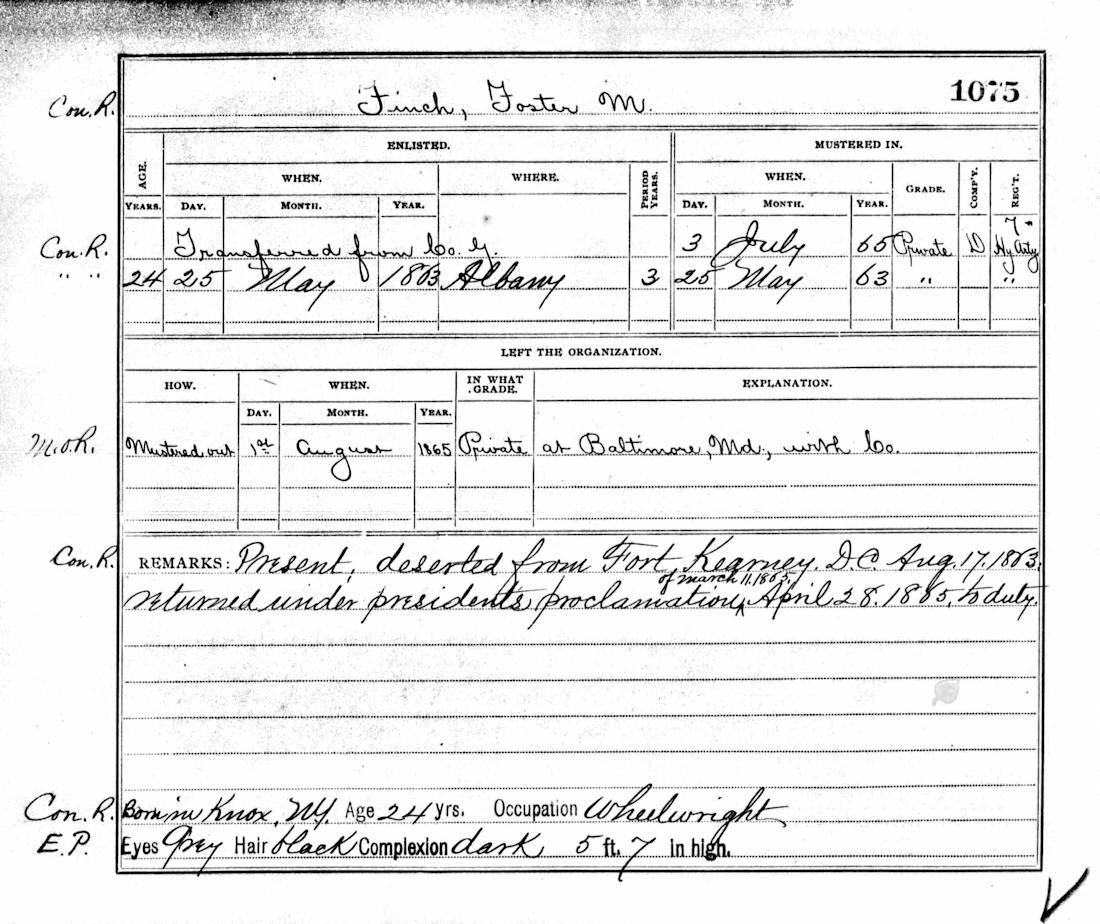 Con. R. Finch, Foster M. 1075
ENLISTED. MUSTERED IN.
AGE. WHEN. WHERE. PERIOD YEARS. WHEN. GRADE. COMP'Y. REG'T.
YEARS. DAY. MONTH. YEAR. DAY. MONTH. YEAR.
Con. R. Transferred from Co. G. 3 July 65 Private D 7" Hy Arty
" " 24 25 May 1863 Albany 3 25 May 63 " "
LEFT THE ORGANIZATION.
HOW. WHEN. IN WHAT GRADE. EXPLANATION.
DAY. MONTH. YEAR.
M.O.R. Mustered out 1st August 1865 Private at Baltimore, Md., with Co.
Con. R. REMARKS: Present, deserted from Fort Kearney. D.C Aug. 17. 1863.
of march 11. 1865.
returned under presidents proclamation ^ April 28. 1865, to duty.
Con. R. Born in Knox, NY. Age 24 yrs. Occupation Wheelwright
E.P. Eyes Grey Hair black Complexion dark 5 ft. 7 in high.